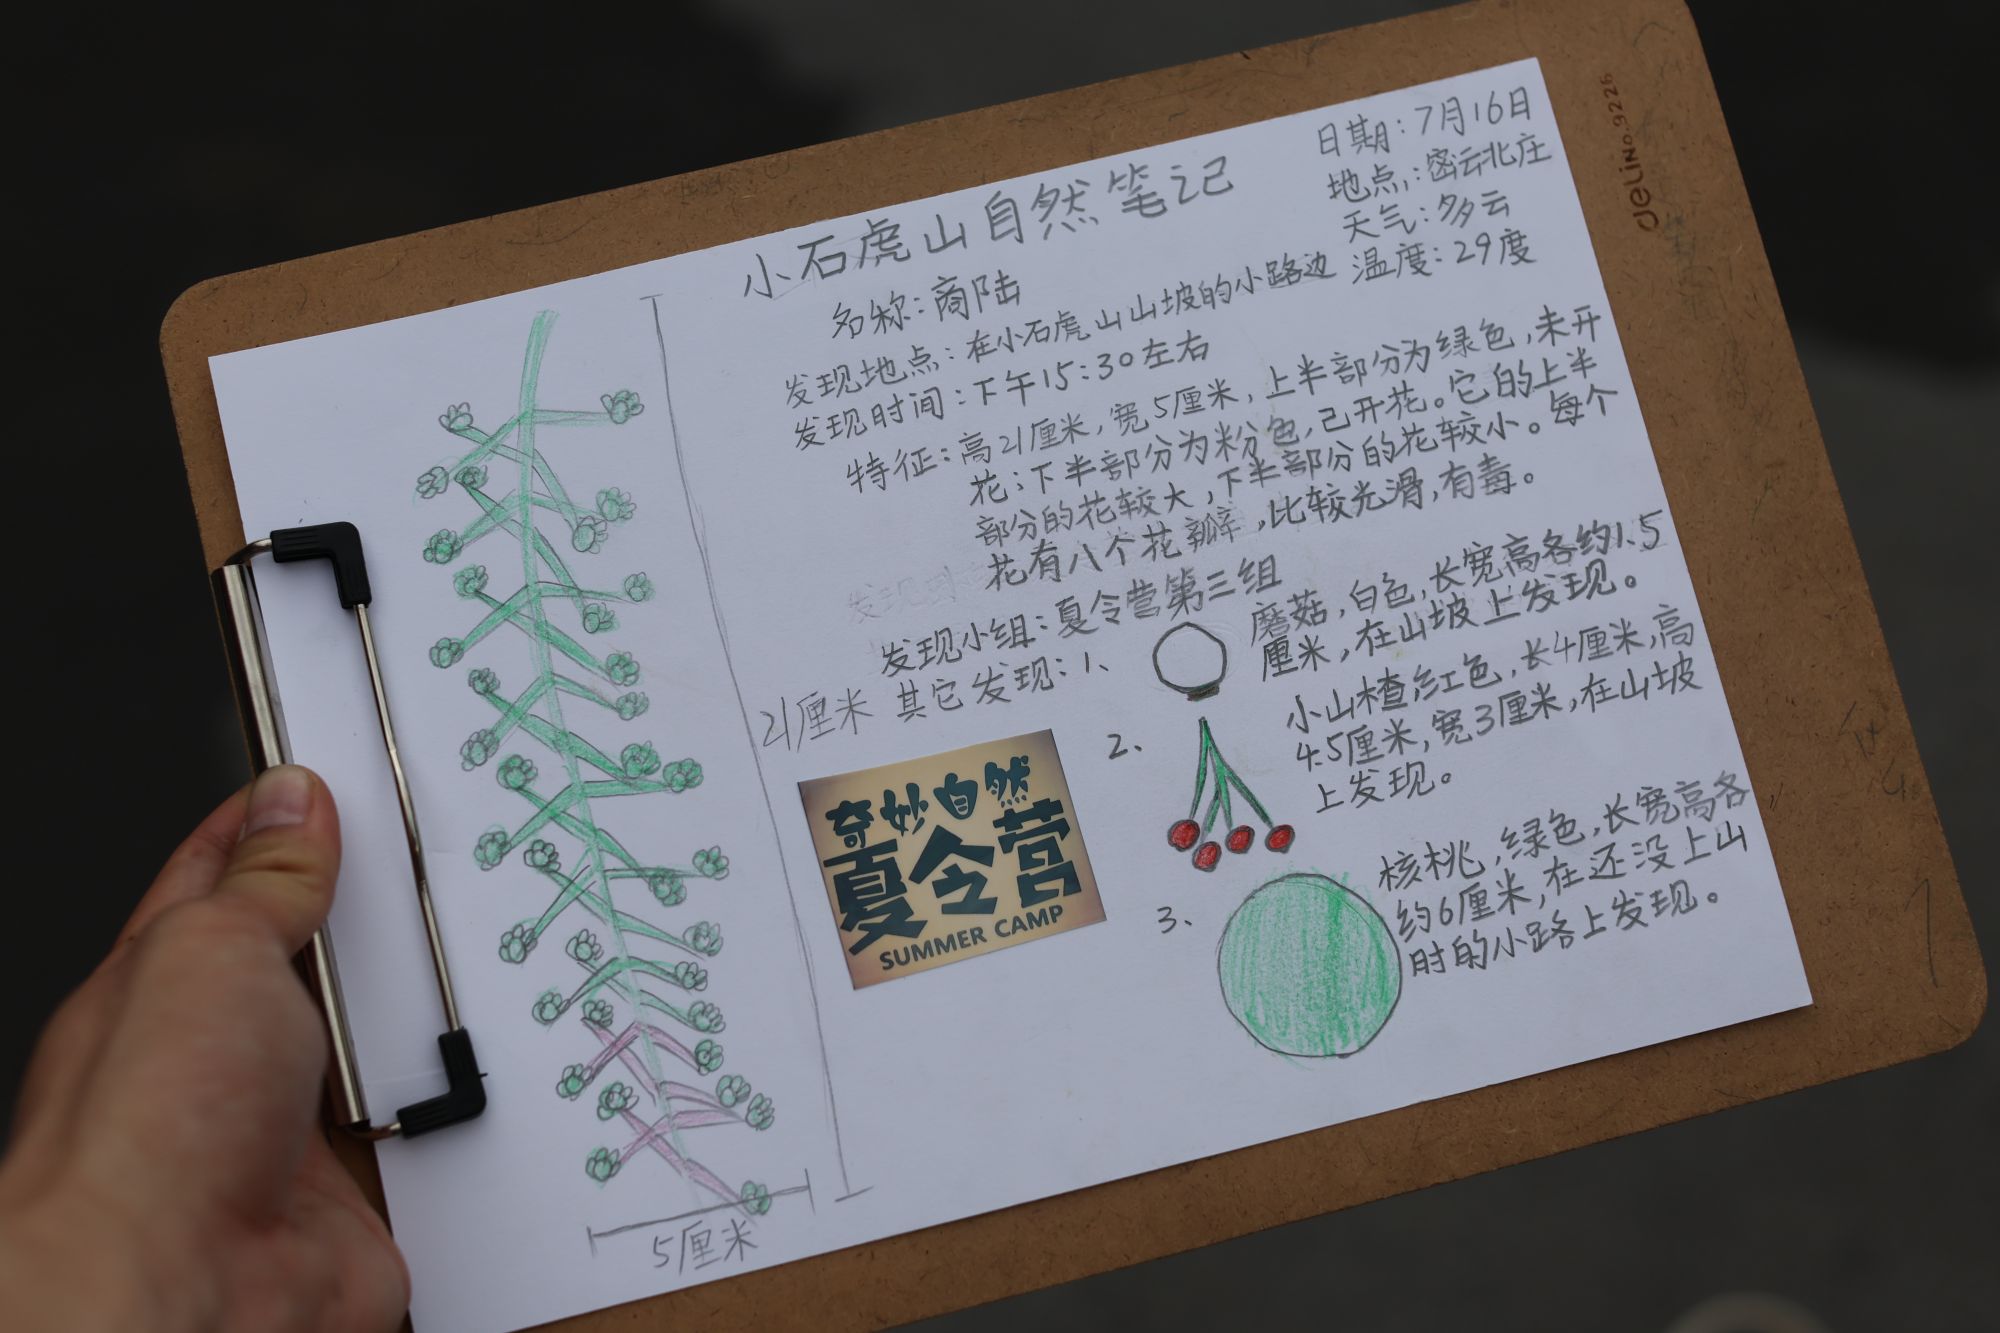 小石虎山自然笔记
日期：7月16日
地点：密云北庄
天气：多云
温度：29度
名称：商陆
发现地点：在小石虎山山坡的小路边
发现时间：下午15：30左右
特征：高21厘米，宽5厘米，上半部分为绿色，未开
花；下半部分为粉色，已开花。它的上半
部分的花较大，下半部分的花较小。每个
花有八个花瓣，比较光滑，有毒。
发现小组：夏令营第三组
其它发现：1、
磨菇，白色，长宽高各约1.5
厘米，在山坡上发现。
2、
小山楂，红色，长4厘米，高
4.5厘米，宽3厘米，在山坡
上发现。
3、
核桃，绿色，长宽高各
约6厘米，在还没上山
时的小路上发现。
21厘米
5厘米
奇妙自然
夏令营
SUMMER CAMP
deli No.9226